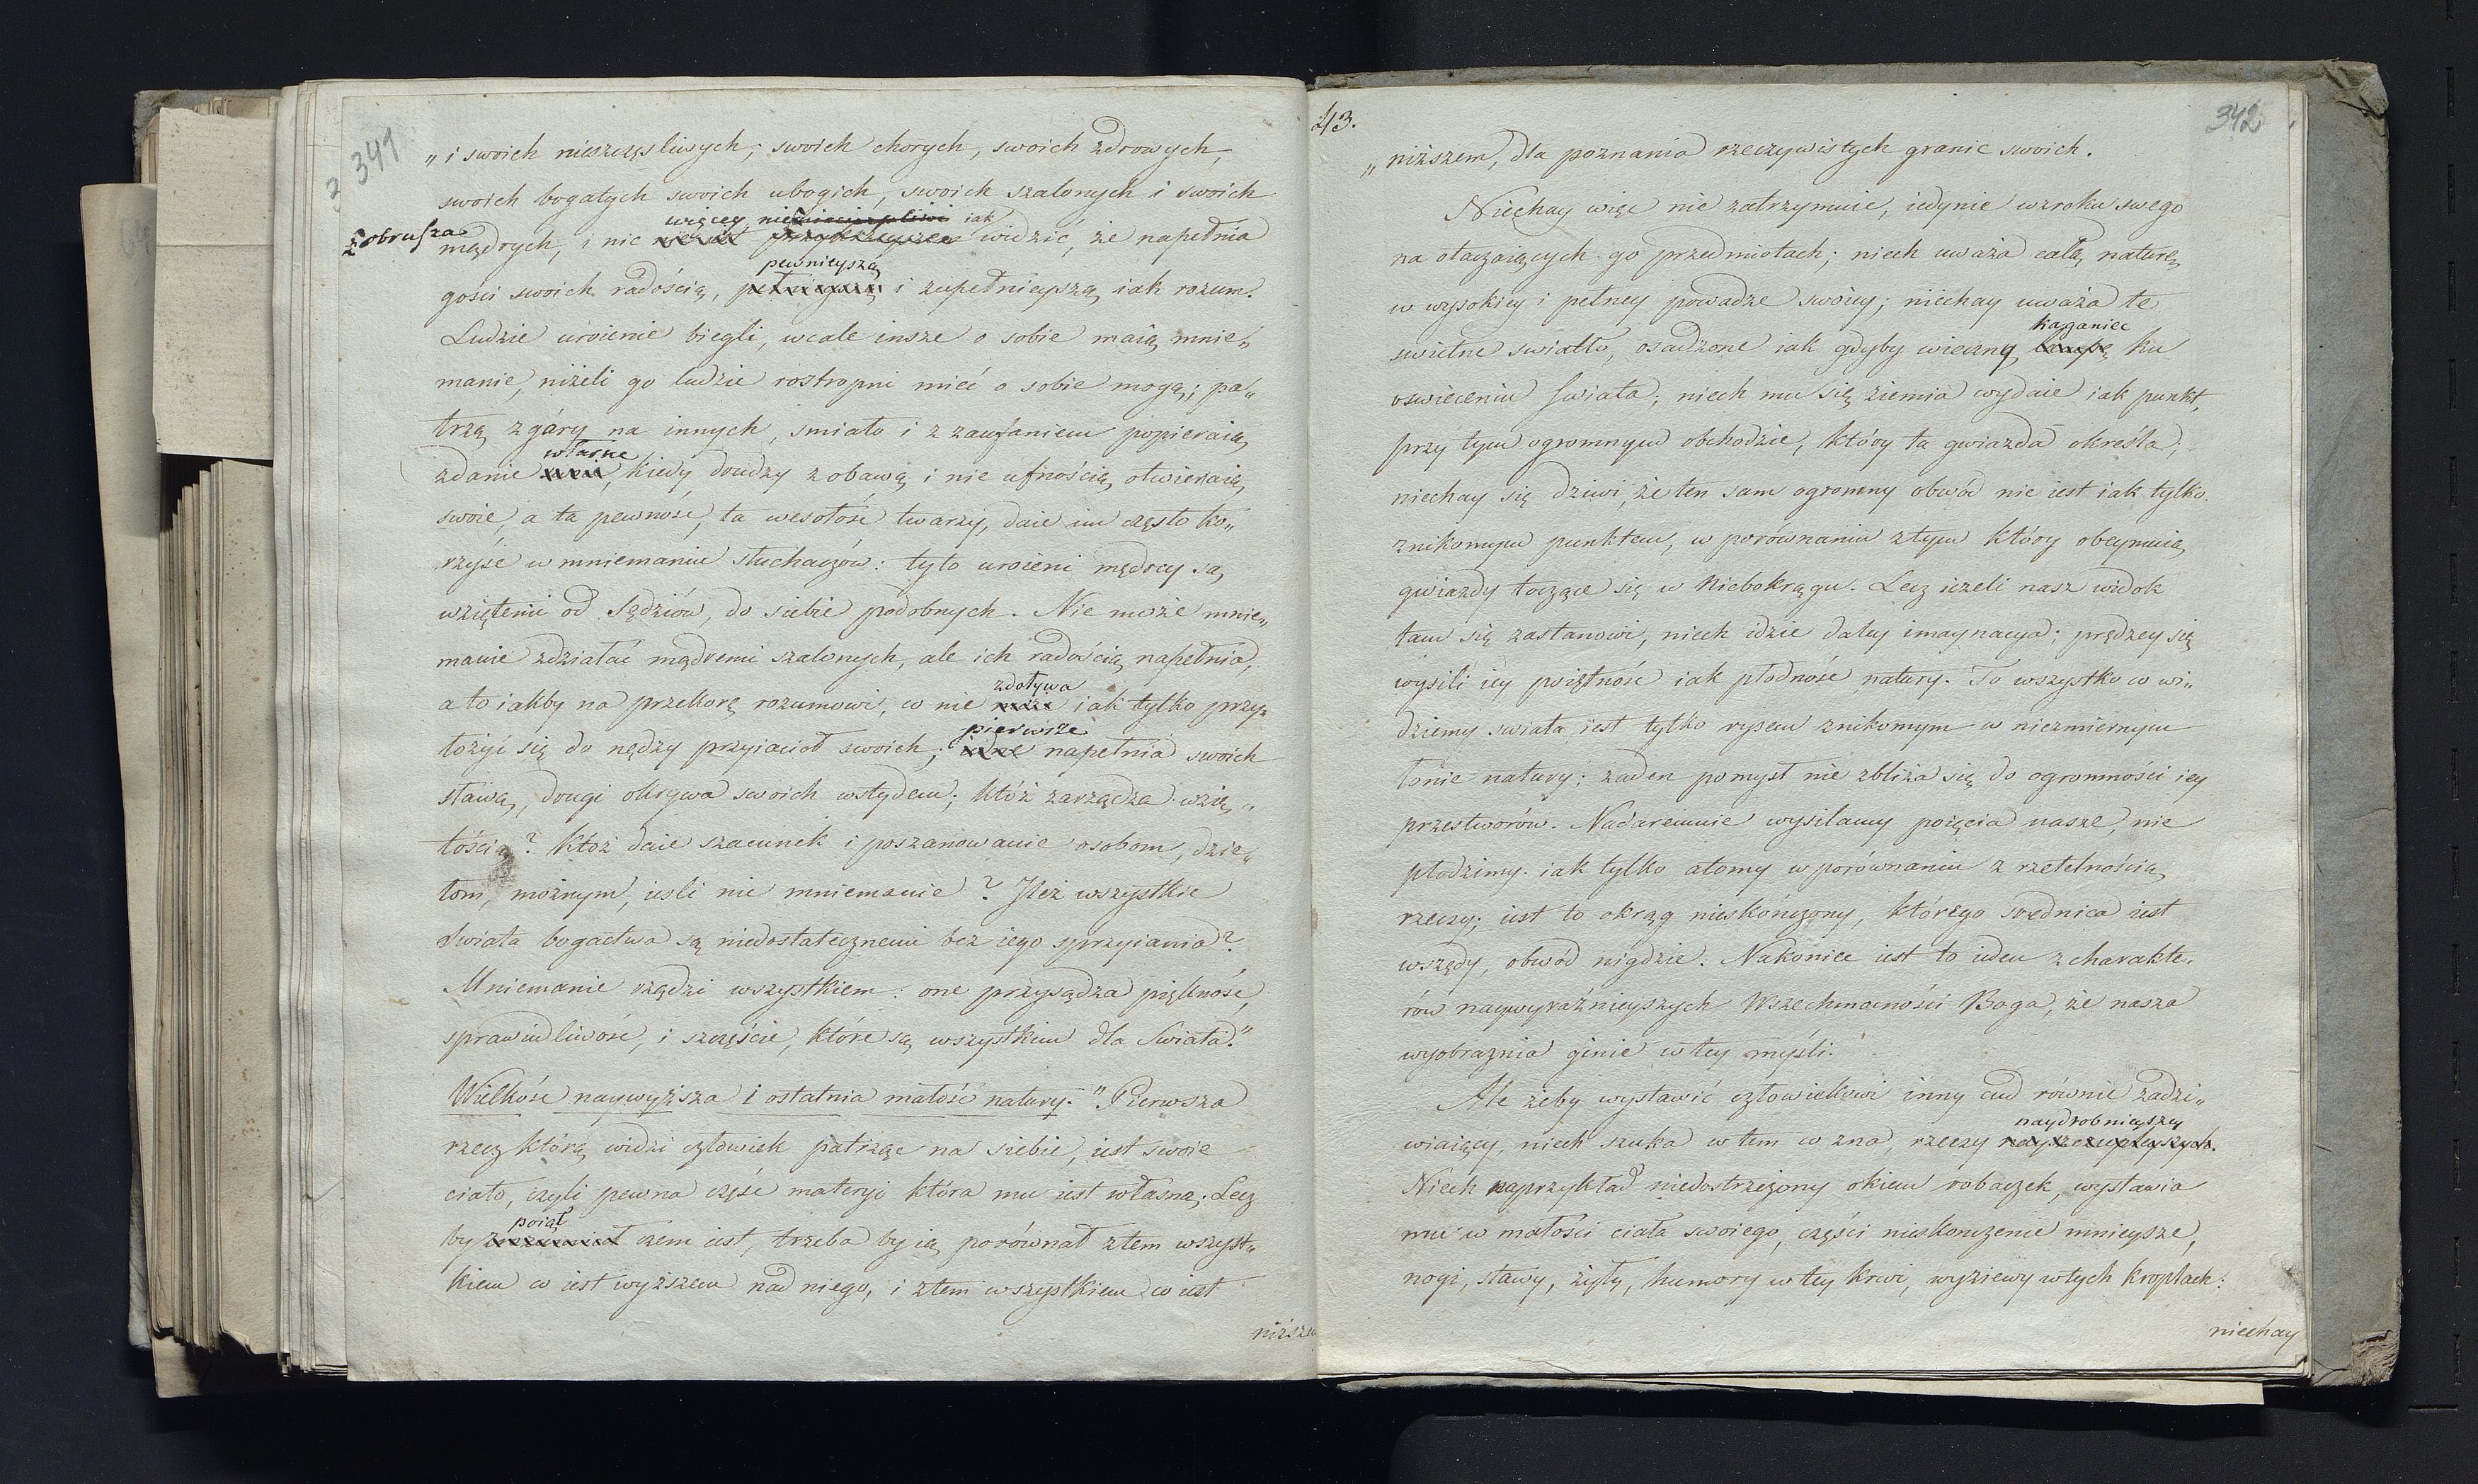 341
„ i swoich nieszczęsliwych; swoich chorych, swoich zdrowych,
swoich bogatych swoich ubogich, swoich szalonych i swoich
więcey nie iak
zobrusza
mądrych, i nic widzić, że napełnia
pewnieyszą
gości swoich radością, i zupełnieyszą iak rozum.
Ludzie uroienie biegli, wcale insze o sobie maią mnie„
manie, niżeli go ludzie roztropni mieć o sobie mogą; pa„
trzą z góry na innych, smiało i z zaufaniem popieraią
własne
zdanie , kiedy drudzy z obawą i nie ufnością otwieraią
swoie, a ta pewność, ta wesołość twarzy, daie im często ko„
rzyść w mniemaniu słuchaczów: tylo uroieni mędrcy są
wziętemi od Sędziów, do siebie podobnych. Nie może mnie„
manie zdziałać mądremi szalonych, ale ich radością napełnia,
zdoływa
a to iakby na przekorę rozumowi, co nie może iak tylko przy„
pierwsze
łożyć się do nędzy przyiacioł swoich; iedne napełnia swoich
sławą, drugi okrywa swoich wstydem; któż zarządza wzię„
tością? któż daie szacunek i poszanowanie osobom, dzie„
łom, możnym, iesli nie mniemanie? Ileż wszystkie
Swiata bogactwa są niedostatecznemi bez iego sprzyiania?
Mniemanie rządzi wszystkiem: one przysądza piękność,
sprawiedliwość, i szczęście, które są wszystkiem dla Swiata."
Wielkość naywyższa i ostatnia małość natury. "Pierwsza
rzecz którą widzi człowiek patrząc na siebie, iest swoie
ciało, czyli pewna część materyi która mu iest własną; Lecz
poiął
by zrozumiał czem iest, trzeba by ią porównał z tem wszyst„
kiem co iest wyższem nad niego, i z tem wszystkiem co iest
niższem
43.
342
„ niższem, dla poznania rzeczywistych granic swoich.
Niechay więc nie zatrzymuie, iedynie wzroku swego
na otaczaiących go przedmiotach; niech uważa całą naturę
w wysokiey i pełney powadze swoiey; niechay uważa te
kaganiec
swietne swiatło, osadzone iak gdyby wieczny lampę ku
oswieceniu Swiata; niech mu się ziemia wydaie iak punkt,
przy tym ogromnym obchodzie, który ta gwiazda określa;
niechay się dziwi, że ten sam ogromny obwód nic iest iak tylko
znikomym punktem, w porównaniu z tym który obeymuią
gwiazdy toczące się w Niebokręgu. Lecz ieżeli nasz widok
tam się zastanowi, niech idzie daley imaynacya; prędzey się
wysili iey poiętność iak płodność natury. To wszystko co wi„
dziemy swiata iest tylko rysem znikomym w niezmiernym
łonie natury: żaden pomysł nie zbliża się do ogromności iey
przestworów. Nadaremnie wysilamy poięcia nasze, nie
płodzimy iak tylko atomy w porównaniu z rzetelnością
rzeczy; iest to okrąg nieskończony, którego srednica iest
wszędy, obwód nigdzie. Nakoniec iest to ieden z charakte„
rów naywyraźnieyszych Wszechmocności Boga, że nasza
wyobraznia ginie w tey myśli.
Ale żeby wystawić człowiekowi inny cud równie zadzi„
naydrobnieyszey
wiaiący, niech szuka w tem co zna, rzeczy nayszczupleyszych.
Niech naprzykład niedostrzeżony okiem robaczek, wystawia
mu w małości ciała swoiego, części nieskonczenie mnieysze,
nogi, stawy, żyły, humory w tey krwi, wyziewy w tych kroplach:
niechay